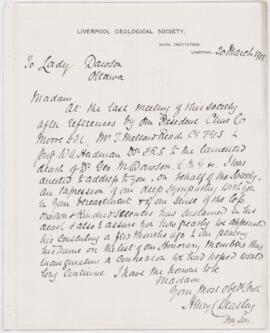 LIVERPOOL GEOLOGICAL SOCIETY.
ROYAL INSTITUTION,
LIVERPOOL, 20 March 1901
To Lady Dawson
Ottawa
Madam
At the last meeting of this Society
after references by our President
Moore Mr. T. Mellard Reade C.E. F.G.S &
Prof W. A. Herdman DSc F.R.S to the lamented
death of Dr. Geo M. Dawson, C.M.G &c. I was
directed to address to you, on behalf of the Society,
an expression of our deep sympathy with you
in your bereavement & of our sense of the loss
Science has sustained in his
death. I also assure you how greatly we appreciated
his consenting a few months ago to our placing
his name on the list of our Honorary Members thus
a connexion we had hoped would
long continue. I have the honour to be
Madam
Your most Obdt Servt
Henry C. Beasley
Hon. Sec.